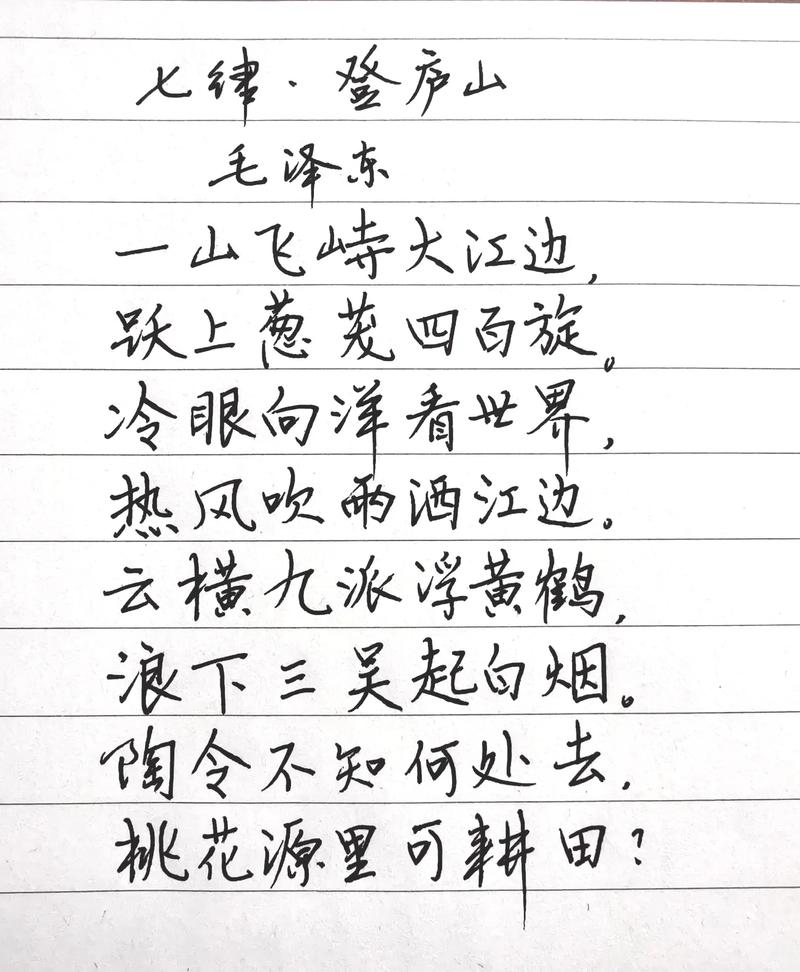 七律·登庐山
毛泽东
一山飞峙大江边,
跃上葱茏四百旋。
冷眼向洋看世界,
热风吹雨洒江边。
云横九派浮黄鹤,
浪下三吴起白烟。
陶令不知何处去,
桃花源里可耕田?